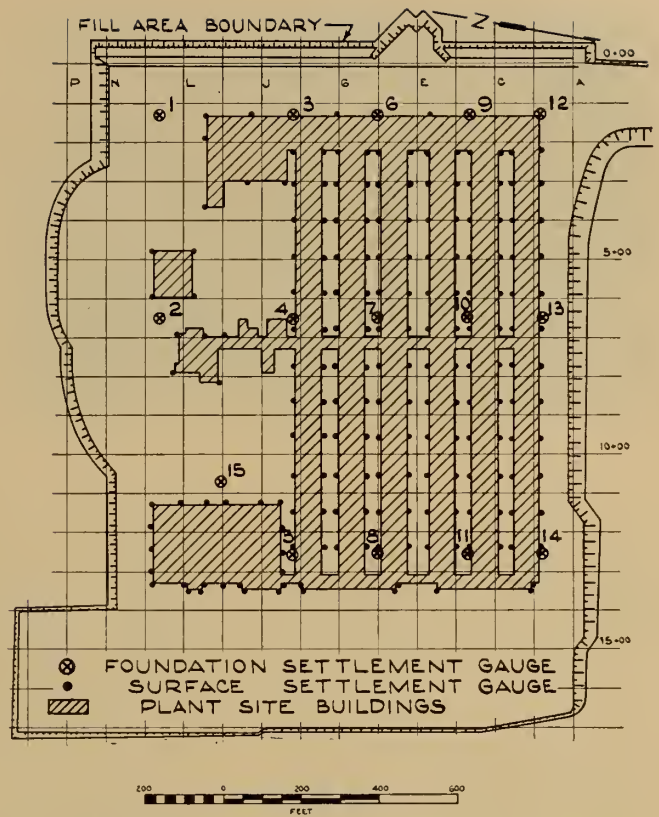 FILL AREA BOUNDARY
Z
0+00
P N L J G E C A
1 3 6 9 12
5+00
2 4 7 10 13
10+00
15
5 8 11 14
15+00
FOUNDATION SETTLEMENT GAUGE
SURFACE SETTLEMENT GAUGE
PLANT SITE BUILDINGS
200 0 200 400 600
FEET